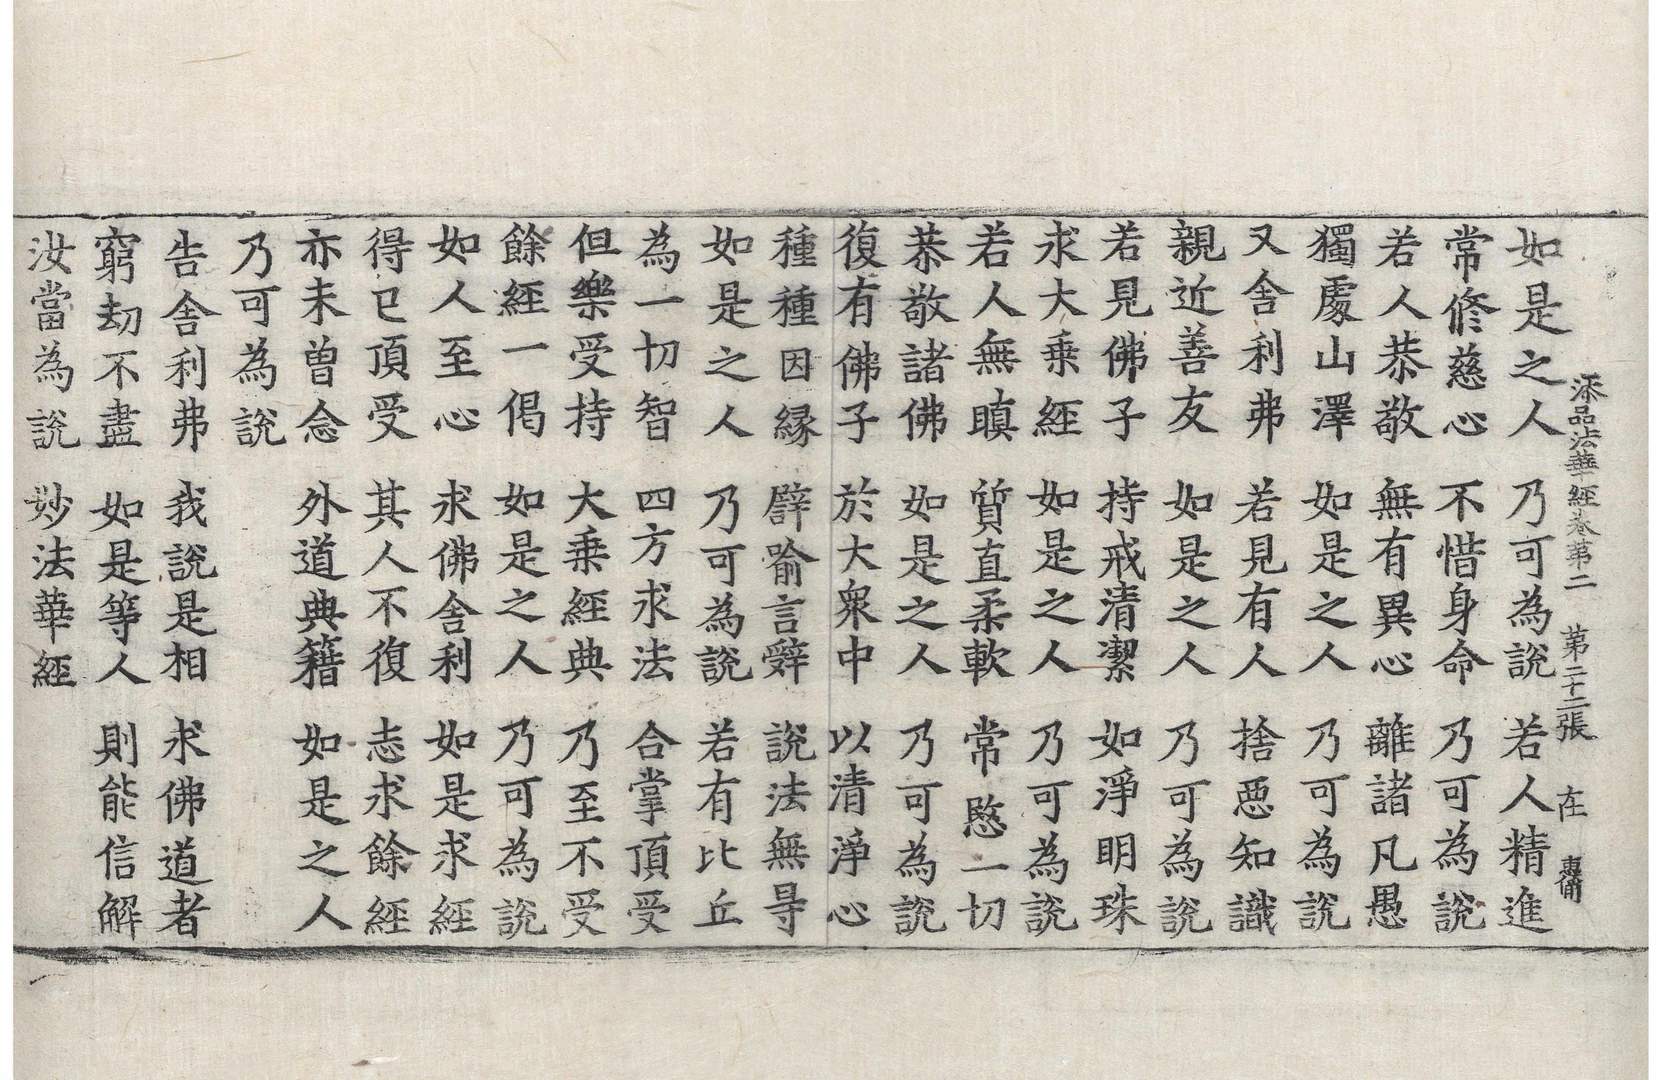 添品法華經卷第二 第二十二張 在
如是之人 乃可為說 若人精進
常修慈心 不惜身命 乃可為說
若人恭敬 無有異心 離諸凡愚
獨處山澤 如是之人 乃可為說
又舍利弗 若見有人 捨惡知識
親近善友 如是之人 乃可為說
若見佛子 持戒清潔 如淨明珠
求大乘經 如是之人 乃可為說
若人無瞋 質直柔軟 常愍一切
恭敬諸佛 如是之人 乃可為說
復有佛子 於大衆中 以清淨心
種種因緣 譬喻言辭 說法無㝵
如是之人 乃可為說 若有比丘
為一切智 四方求法 合掌頂受
但樂受持 大乘經典 乃至不受
餘經一偈 如是之人 乃可為說
如人至心 求佛舍利 如是求經
得已頂受 其人不復 志求餘經
亦未曾念 外道典籍 如是之人
乃可為說
告舍利弗 我說是相 求佛道者
窮劫不盡 如是等人 則能信解
汝當為說 妙法華經